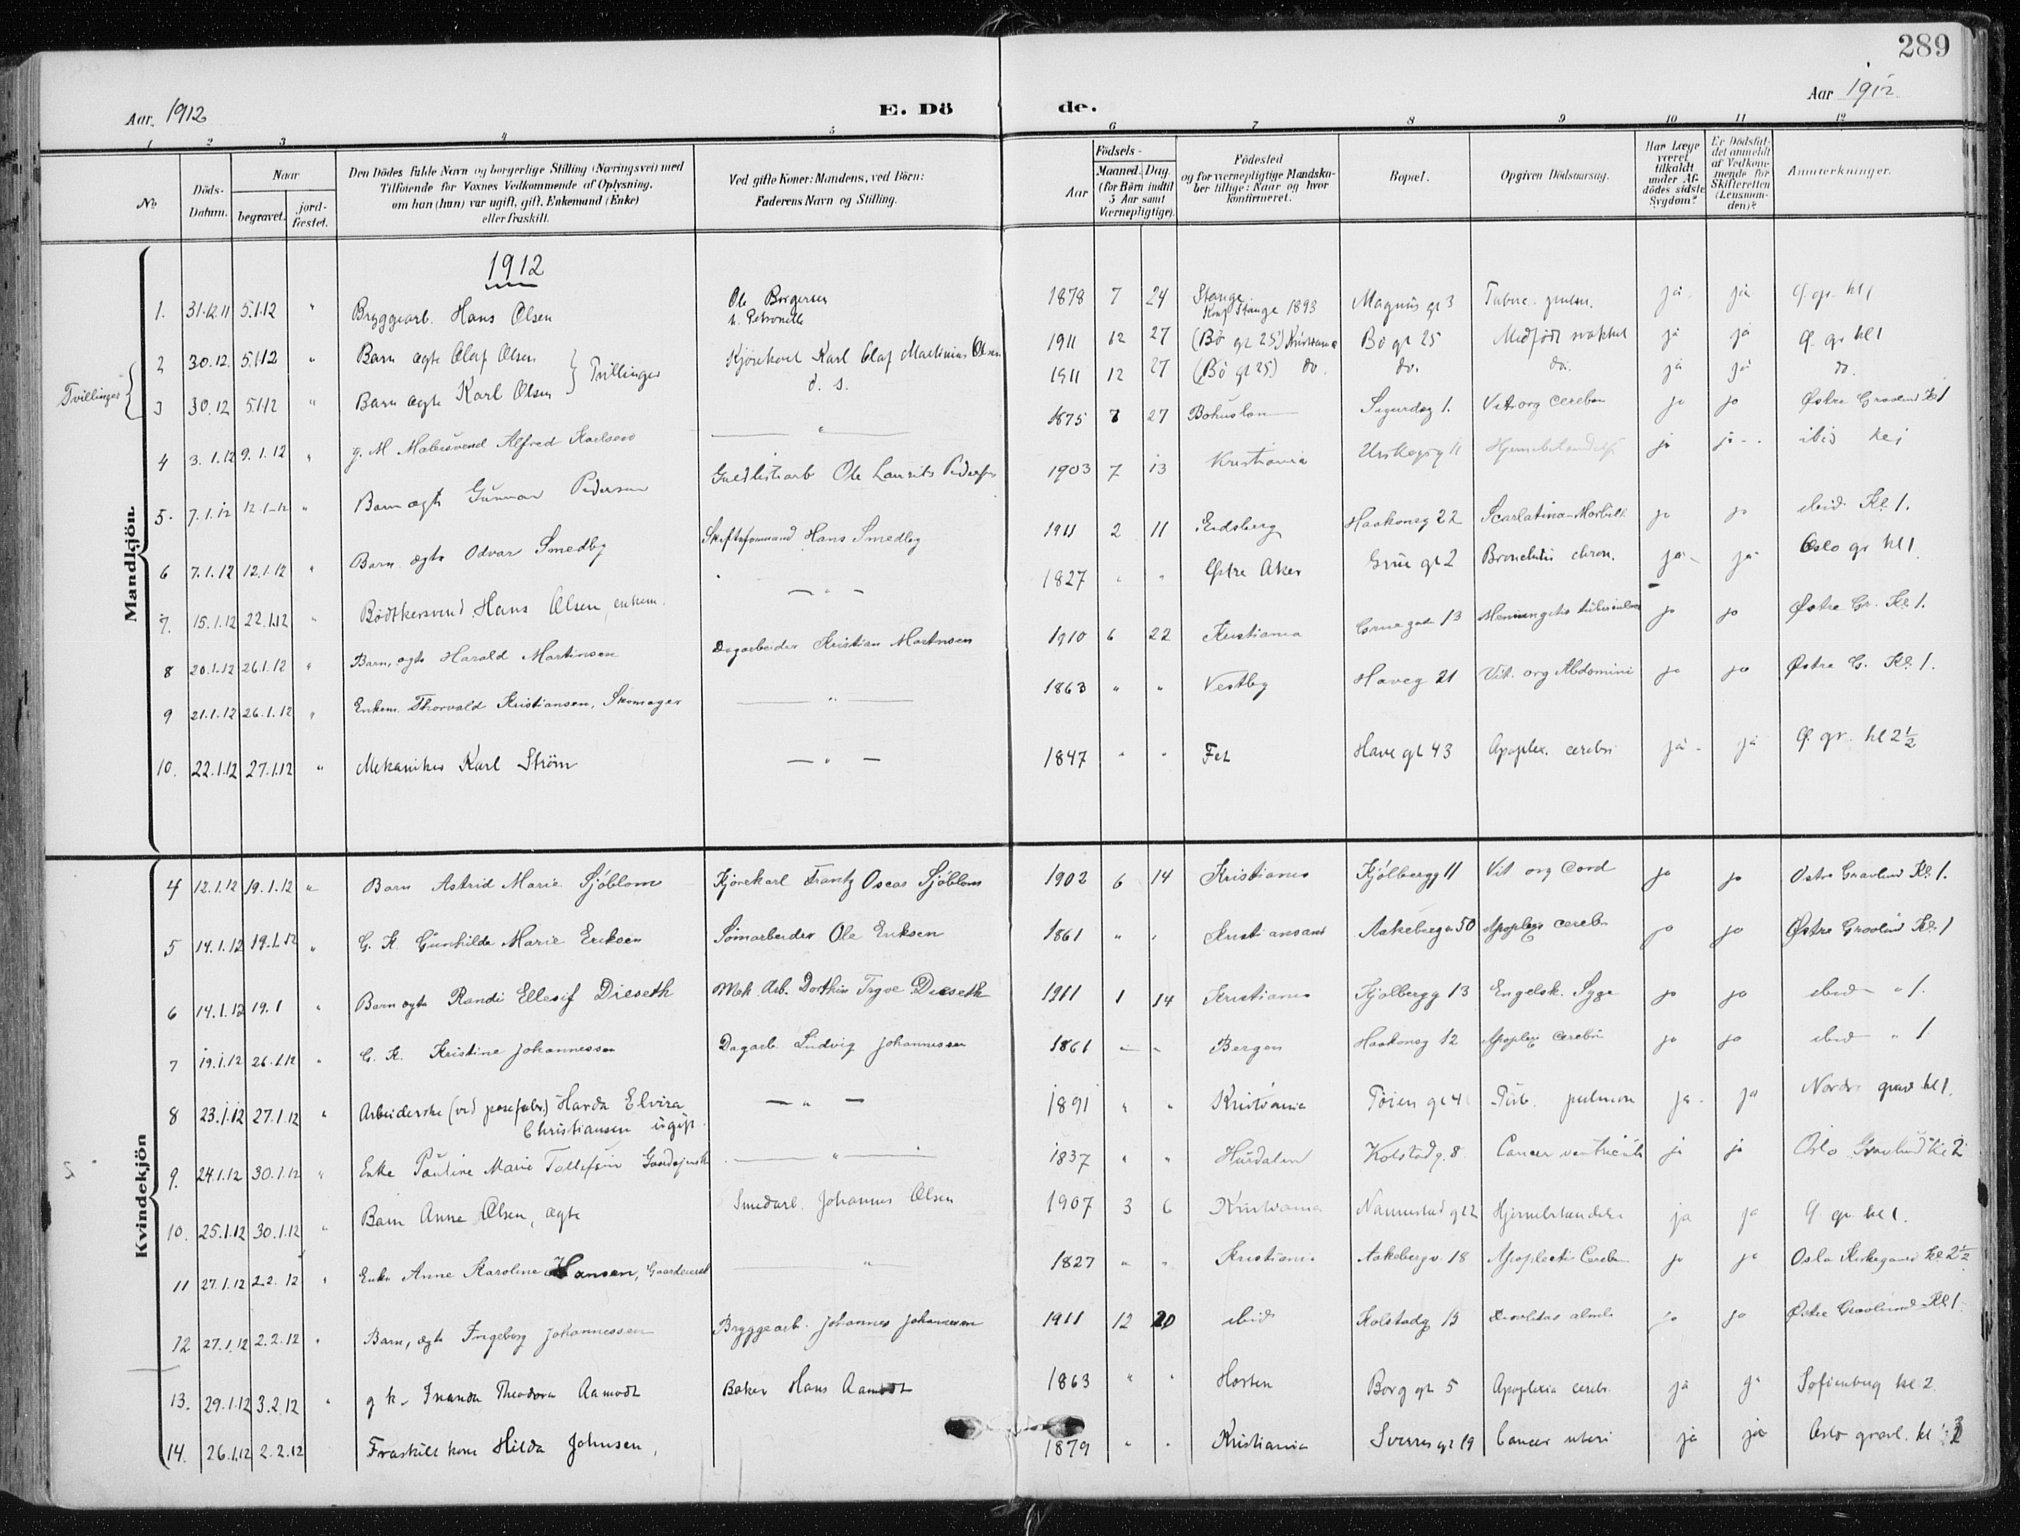 289
Aar 1912 E. Dö de. Aar 1912
1 2 3 4 5 6 7 8 9 10 11 12
No. Döds-Datum. Naar begravet. jordfæstet. Den Dödes fulde Navn og borgerlige Stilling (Næringsvei) med Tilføiende for Voxnes Vedkommende af Oplysning, om han (hun) var ugift, gift, Enkemand (Enke) eller fraskilt. Ved gifte Koner: Mandens, ved Börn: Faderens Navn og Stilling. Födsels- Aar Maaned. Dag. (for Börn indtil 5 Aar samt Værnepligtige). Födested og for værnepligtige Mandskaber tillige: Naar og hvor konfirmeret. Bopæl. Opgiven Dödsaarsag. Har Læge været tilkaldt under Afdödes sidste Sygdom? Er Dödsfaldet anmeldt af Vedkommende for Skifteretten (Lensmanden)? Anmærkninger.
1912
Mandkjön.
1. 31.12.11 5.1.12 " Bryggearb. Hans Olsen Ole Borgersen h. Petronelle 1878 7 24 Stange Konf Stange 1893 Magnus gt 3 Tuberc. pulm. ja ja Ø. gr. kl 1
Tvillinger
2 30.12. 5.1.12 " Barn ægte Olaf Olsen } Tvillinger Kjörekarl Karl Olaf Martinius Olsen 1911 12 27 (Bö gt 25) Kristiania Bö gt 25 Medfödt svakhet ja ja Ø. gr kl 1
3 30.12 5.1.12 " Barn ægte Karl Olsen d. s. 1911 12 27 (Bö gt 25) do. do. do. ja ja do.
4 3.1.12 9.1.12 " g. M Malersvend Alfred Karlsson — " — 1875 7 27 Bohuslen Sigurdsg 1. Vit org cerebri ja ja Østre Gravlund Kl 1
5. 7.1.12 12.1.12 " Barn ægte Gunnar Pedersen Guldlistarb Ole Laurits Pedersen 1903 7 13 Kristiania Urskogsg 11 Hjernebetændelse ja ja ibid kl 1
6 7.1.12 12.1.12 " Barn ægte Odvar Smedby Skiftsformand Hans Smedby 1911 2 11 Eidsberg Haakonsg 22 Scarlatina-Morbilli ja ja ibid Kl 1.
7. 15.1.12 22.1.12 " Bödtkersvend Hans Olsen, enkem. — " — 1827 " " Østre Aker Grüe gt 2 Bronchitis chron. ja ja Oslo gr kl 1
8 20.1.12 26.1.12 " Barn, ægte Harald Martinsen Dagarbeider Kristian Martinsen 1910 6 22 Kristiania Grüegaden 13 Meningitis tuberculosa ja ja Østre Gr. Kl 1.
9 21.1.12 26.1.12 " Enkem. Thorvald Kristiansen, Skomager — " — 1863 " " Vestby Haveg 21 Vit. org Abdomini ja ja Østre G. Kl. 1.
10. 22.1.12 27.1.12 " Mekaniker Karl Ström — " — 1847 " " Fet Have gt 43 Apoplex. cerebri ja ja Ø. gr. kl 2½
Kvindekjön
4 12.1.12 19.1.12 " Barn Astrid Marie Sjöblom Kjörekarl Frantz Oscar Sjöblom 1902 6 14 Kristiania Kjölbergg 11 Vit org Cord ja ja Østre Gravlund Kl 1.
5 14.1.12 19.1.12 " G. K Gunhilde Marie Eriksen Sömarbeider Ole Eriksen 1861 " " Kristiansand Aakebergv 50 Apoplexi cerebri ja ja Østre Gravlund Kl 1
6 14.1.12 19.1 " Barn ægte Randi Ellesif Dieseth Mek. Arb. Trygve Dieseth 1911 1 14 Kristiania Kjölbergg 13 Engelsk. Syge ja ja ibid " 1.
7 19.1.12 26.1.12 " G. K. Kristine Johannessen Dagarb. Ludvig Johannessen 1861 — " Bergen Haakonsg 12 Apoplexi Cerebri ja ja ibid " 1
8 23.1.12 27.1.12 " Arbeiderske (ved posefabr.) Harda Elvira Christiansen ugift. — " — 1891 " " Kristiania Töien gt 4 Tub. pulmon ja ja Nordre grav kl 1.
9. 24.1.12 30.1.12 " Enke Pauline Marie Tollefsen — " — 1837 " " Hurdalen Kolstadg. 8 Cancer ventriculi ja ja Oslo Gravlund kl 2
10. 25.1.12 30.1.12 " Barn Anne Olsen, ægte Smedarb. Johannes Olsen 1907 3 6 Kristiania Nannestad gt 2 Hjernebetændelse ja ja Ø gr. kl 1.
11 27.1.12 2.2.12 " Enke Anne Karoline Hansen, — " — 1827 " " Kristiania Aakebergv. 18 Apoplecti Cerebri ja ja Oslo Kirkegaard Kl. 2½
12 27.1.12 2.2.12 " Barn, ægte Ingeborg Johannessen Bryggearb. Johannes Johannessen 1911 12 20 ibid Kolstadg 13 ja ja Østre Gravlund Kl 1.
13. 29.1.12 3.2.12 " g k. Theodora Aamodt Baker Hans Aamodt 1863 " " Horten Borg gt 5 Apoplexia cerebr. ja ja Sofienberg kl. 2.
14. 26.1.12 2.2.12 Fraskilt kone Hilda Johnsen, 1879 " " Kristiania Sverres gt 19 Cancer uteri ja ja Oslo gravl. kl